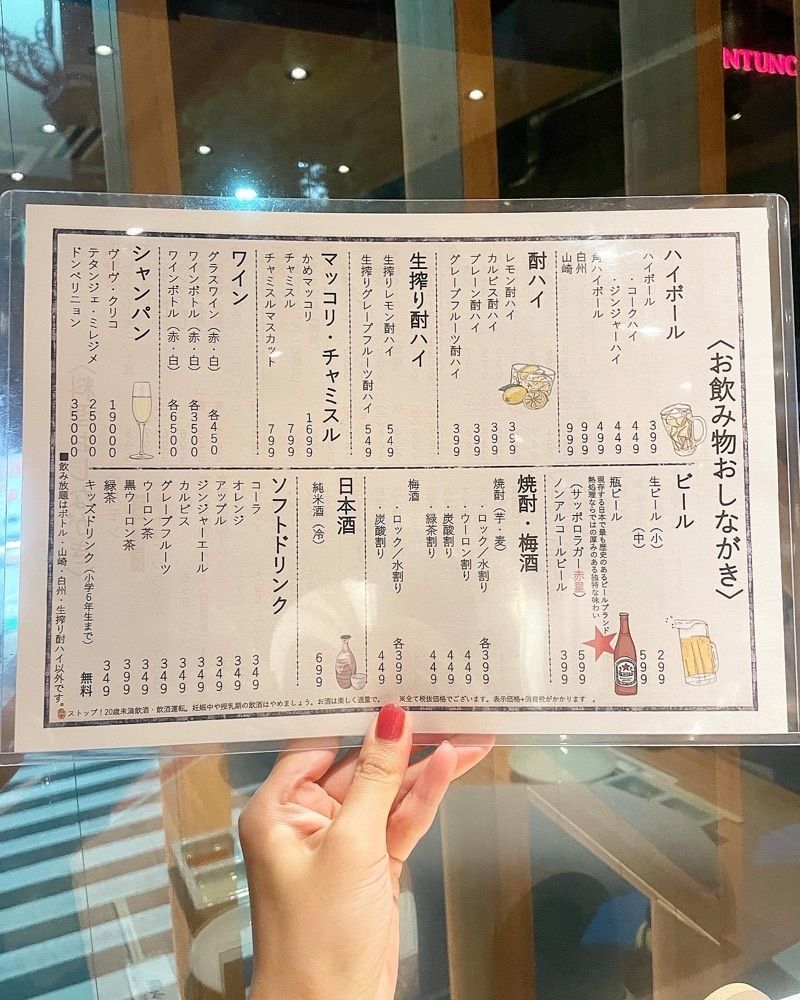 NTUNC
〈お飲み物おしながき〉
ハイボール
ハイボール 399
・コークハイ 449
・ジンジャーハイ 449
角ハイボール 499
白州 999
山崎 999
酎ハイ
レモン酎ハイ 399
カルピス酎ハイ 399
プレーン酎ハイ 399
グレープフルーツ酎ハイ 399
生搾り酎ハイ
生搾りレモン酎ハイ 549
生搾りグレープフルーツ酎ハイ 549
マッコリ・チャミスル
かめマッコリ 1699
チャミスル 799
チャミスルマスカット 799
ワイン
グラスワイン（赤・白） 各450
ワインボトル（赤・白） 各3500
ワインボトル（赤・白） 各6500
シャンパン
ヴーヴ・クリコ 19000
テタンジェ・ミレジメ 25000
ドンペリニョン 35000
ビール
生ビール（小） 299
（中） 599
瓶ビール
現存する日本で最も歴史のあるビールブランド
熱処理ならではの厚みのある独特な味わい
（サッポロラガー赤星） 599
ノンアルコールビール 399
焼酎・梅酒
焼酎（芋・麦）
・ロック／水割り 各399
・ウーロン割り 449
炭酸割り 449
緑茶割り 449
梅酒
・ロック／水割り 各399
・炭酸割り 449
日本酒
純米酒（冷） 699
ソフトドリンク
コーラ 349
オレンジ 349
アップル 349
ジンジャーエール 349
カルピス 349
グレープフルーツ 349
ウーロン茶 349
黒ウーロン茶 399
緑茶 349
キッズドリンク（小学6年生まで） 無料
■飲み放題はボトル・山崎・白州・生搾り酎ハイ以外です。
ストップ！20歳未満飲酒・飲酒運転。妊娠中や授乳期の飲酒はやめましょう。お酒は楽しく適量で。
※全て税抜価格でございます。表示価格+消費税がかかります。